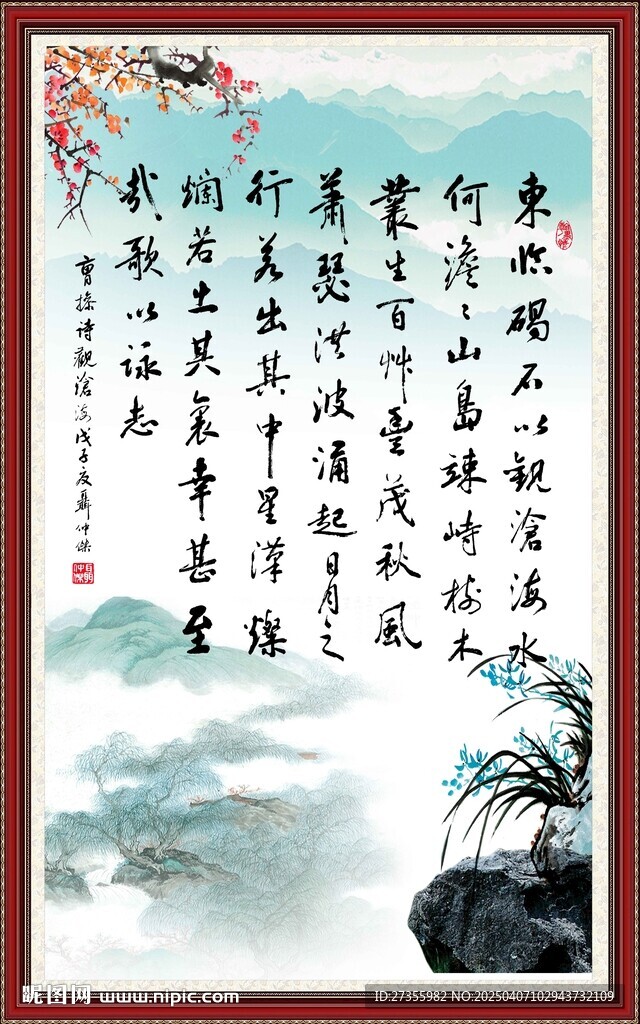 東臨碣石以觀滄海水
何澹々山島竦峙樹木
叢生百艸豐茂秋風
蕭瑟洪波涌起日月之
行若出其中星漢燦
爛若出其裏幸甚至
哉歌以詠志
曹操詩觀滄海戊子夏聶仲傑
昵图网 www.nipic.com
ID:27355982 NO:20250407102943732109